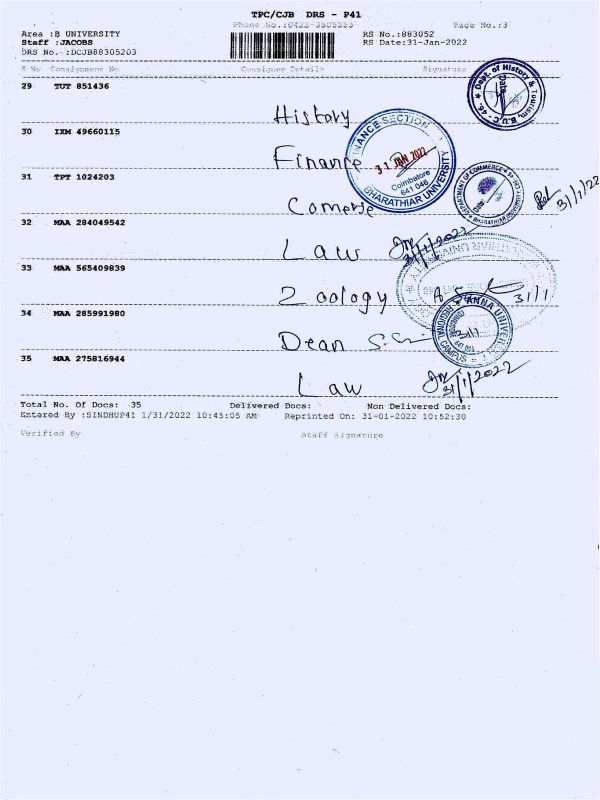 TPC/CJB DRS - P41
Phone No.:0422-3505553 Page No.:3
Area :B UNIVERSITY RS No.:883052
Staff :JACOBS RS Date:31-Jan-2022
DRS No. :DCJB88305203
S No Consignment No Consignee Details Signature
29 TUT 851436
History
Dept. of History & Tourism, B.U.C - 46.
Date
30 IXM 49660115
Finance
FINANCE SECTION
31 JAN 2022
Coimbatore
641 046
BHARATHIAR UNIVERSITY
31 TPT 1024203
Comerse
DEPARTMENT OF COMMERCE
BHARATHIAR UNIVERSITY
31/1/22
32 MAA 284049542
Law 31/1/2022
33 MAA 565409839
Zoology 31/1
34 MAA 285991980
Dean
ANNA UNIVERSITY
REGIONAL CAMPUS
31/1
35 MAA 275816944
Law 31/1/2022
Total No. Of Docs: 35 Delivered Docs: Non Delivered Docs:
Entered By :SINDHUP41 1/31/2022 10:45:05 AM Reprinted On: 31-01-2022 10:52:30
Verified By Staff Signature